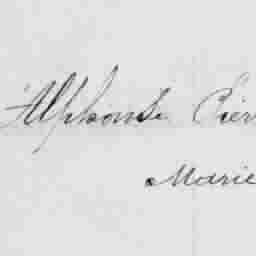 Alphonse Pier
Marie